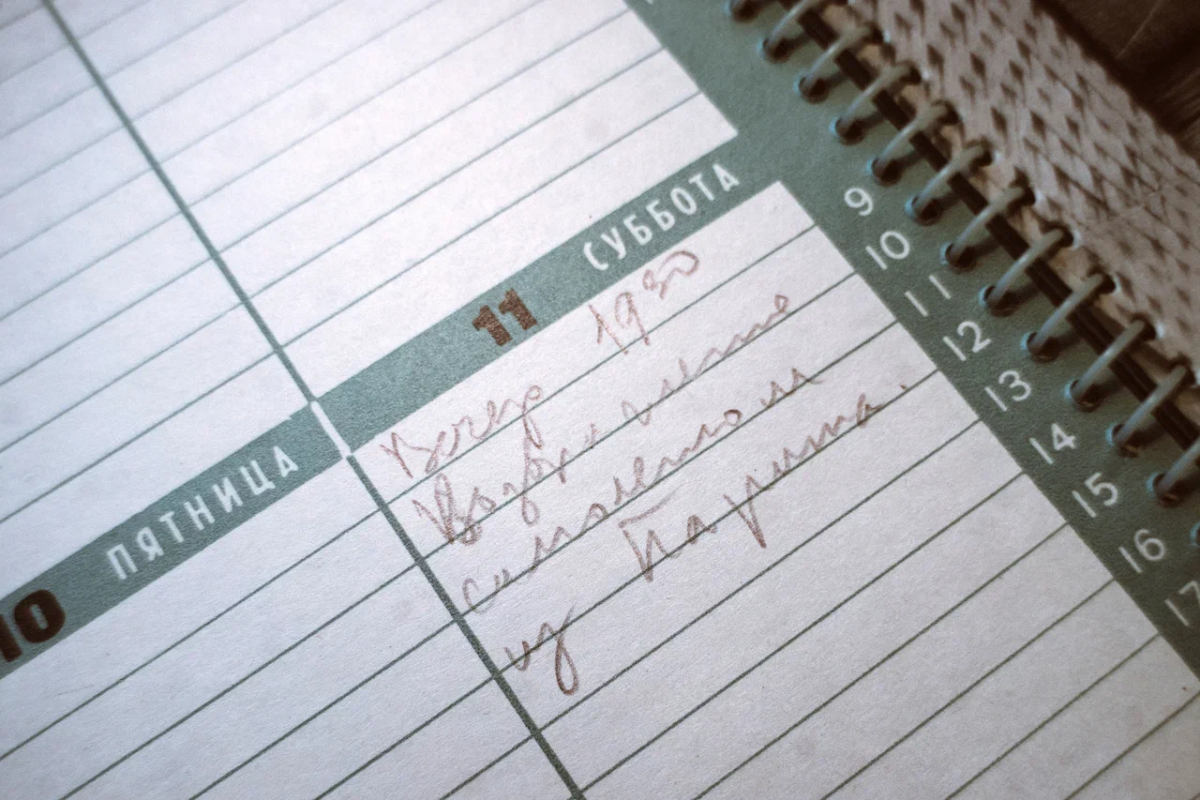 СУББОТА
11
Вечер 19 30
Возвращение
самолетом
из Парижа.
ПЯТНИЦА
10
9
10
11
12
13
14
15
16
17